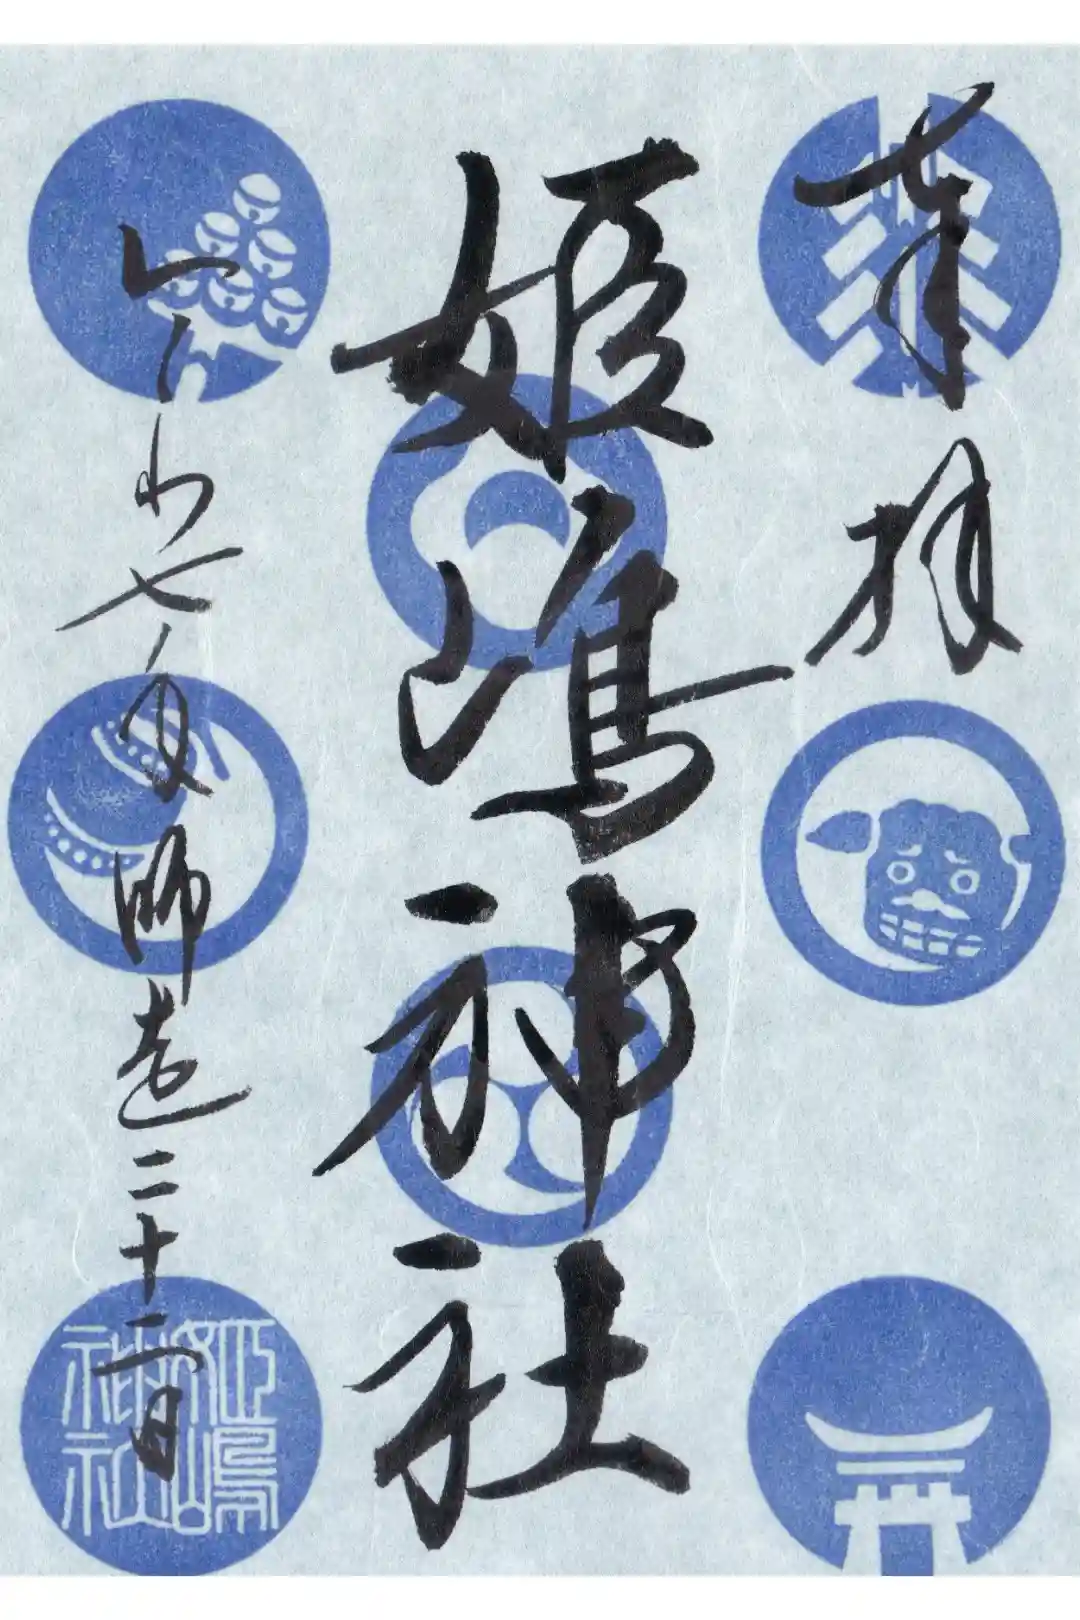 奉拝
姫嶋神社
令和七年師走二十二日
姫嶋
神社